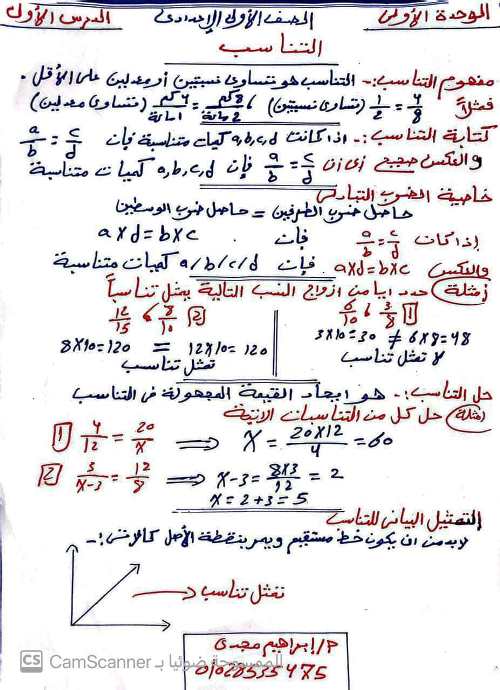 الوحدة الأولى الصف الأول الإعدادى الدرس الأول
التناسب
مفهوم التناسب :- التناسب هو تساوى نسبتين أو معدلين على الأقل .
فمثلاً 4/8 = 1/2 (تساوى نسبتين) ،
(تساوى معدلين)
كتابة التناسب :- اذا كانت a,b,c,d كميات متناسبة فإن a/b = c/d
والعكس صحيح أى أن a/b = c/d فإن a,b,c,d كميات متناسبة
خاصية الضرب التبادلى
حاصل ضرب الطرفين = حاصل ضرب الوسطين
إذا كان a/b = c/d فإن a×d = b×c
والعكس a×d = b×c فإن a/b/c/d كميات متناسبة
أمثلة حدد ايا من ازواج النسب التالية يمثل تناسباً
[1] 3/8 ، 6/10 [2] 8/10 ، 12/15
3×10=30 ≠ 6×8=48 8×10=120 = 12×10=120
لا تمثل تناسب تمثل تناسب
حل التناسب :- هو ايجاد القيمة المجهولة فى التناسب
أمثلة حل كل من التناسبات الاتية
[1] 4/12 = 20/x ⟹ x = 20×12/4 = 60
[2] 3/x-3 = 12/8 ⟹ x-3 = 8×3/12 = 2
x = 2+3 = 5
التمثيل البيانى للتناسب
لابد من ان يكون خط مستقيم ويمر بنقطة الأصل كالاتى :-
تمثل تناسب
م/ إبراهيم مجدى
CS الممسوحة ضوئيا بـ CamScanner